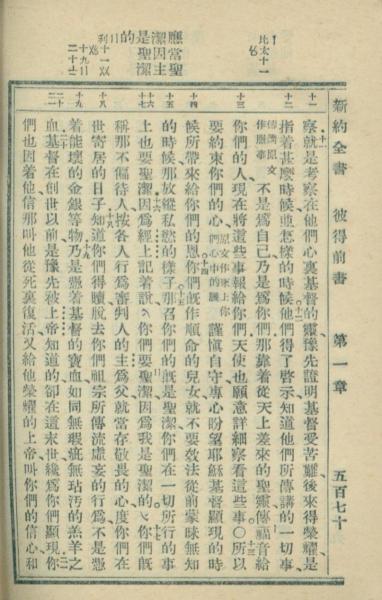 新約全書 彼得前書 第一章 五百七十
應當聖
潔因主
是聖潔
的
十一
察就是考察在他們心裏基督的靈豫先證明基督受苦難後來得榮耀是
十二
指着甚麼時候並怎樣的時候他們得了啟示知道他們所傳講的一切事
傳講原文作服事 不是爲自己乃是爲你們那靠着從天上差來的聖靈傳福音給
十三
你們的人現在將這些事報給你們天使也願意詳細察看這些事○所以
要約束你們的心原文作束上你們心中的腰 謹慎自守專心盼望耶穌基督顯現的時
十四
候所帶來給你們的恩你們旣作順命的兒女就不要效法從前蒙昧無知
十五
的時候那放縱私慾的樣子那召你們的旣是聖潔你們在一切所行的事
十六 十七
上也要聖潔因爲經上記着說你們要聖潔因爲我是聖潔的你們旣
稱那不偏待人按各人行爲審判人的主爲父就當存敬畏的心度你們在
十八
世寄居的日子知道你們得贖脫去你們祖宗所傳流虛妄的行爲不是憑
十九
着能壞的金銀等物乃是憑着基督的寶血如同無瑕疵無玷汚的羔羊之
二十 二十一
血基督在創世以前是豫先被上帝知道的卻在這末世纔爲你們顯現你
們也因着他信那叫他從死裏復活又給他榮耀的上帝叫你們的信心和